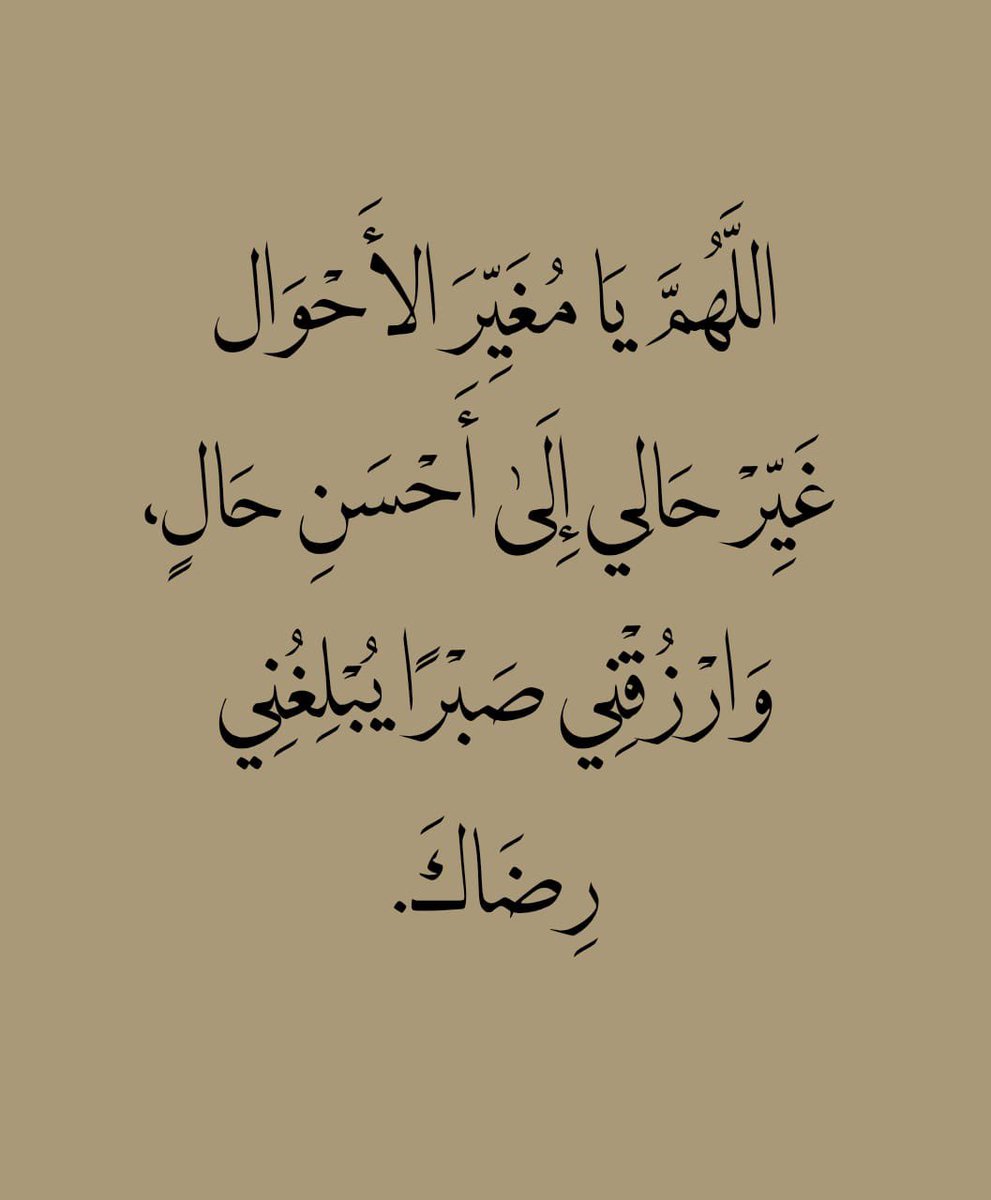 اللَّهُمَّ يَا مُغَيِّرَ الأَحْوَال
غَيِّرْ حَالي إِلَىٰ أَحْسَنِ حَالٍ،
وَارْزُقْنِي صَبْرًا يُبْلِغُنِي
رِضَاكَ.